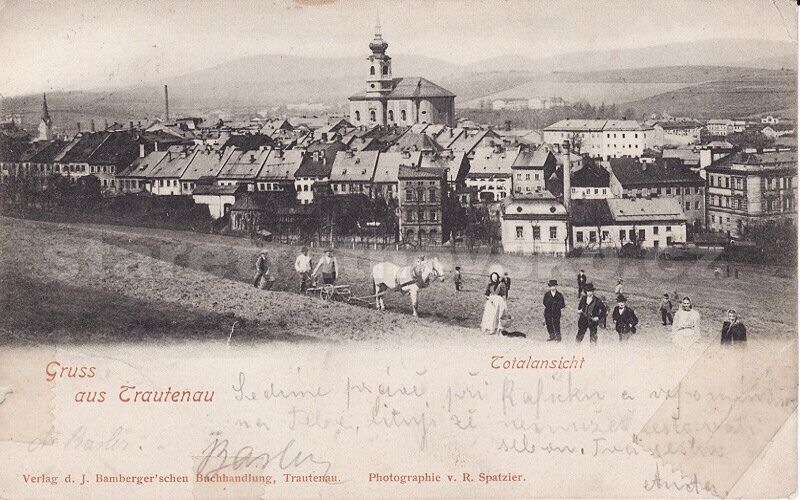 Gruss
aus Trautenau
Totalansicht
Sedíme právě při kafíčku a vzpomínáme
na Tebe, lituji že nemůžeš cestovati
sebou.
Basler
Verlag d. J. Bamberger'schen Buchhandlung, Trautenau.
Photographie v. R. Spatzier.